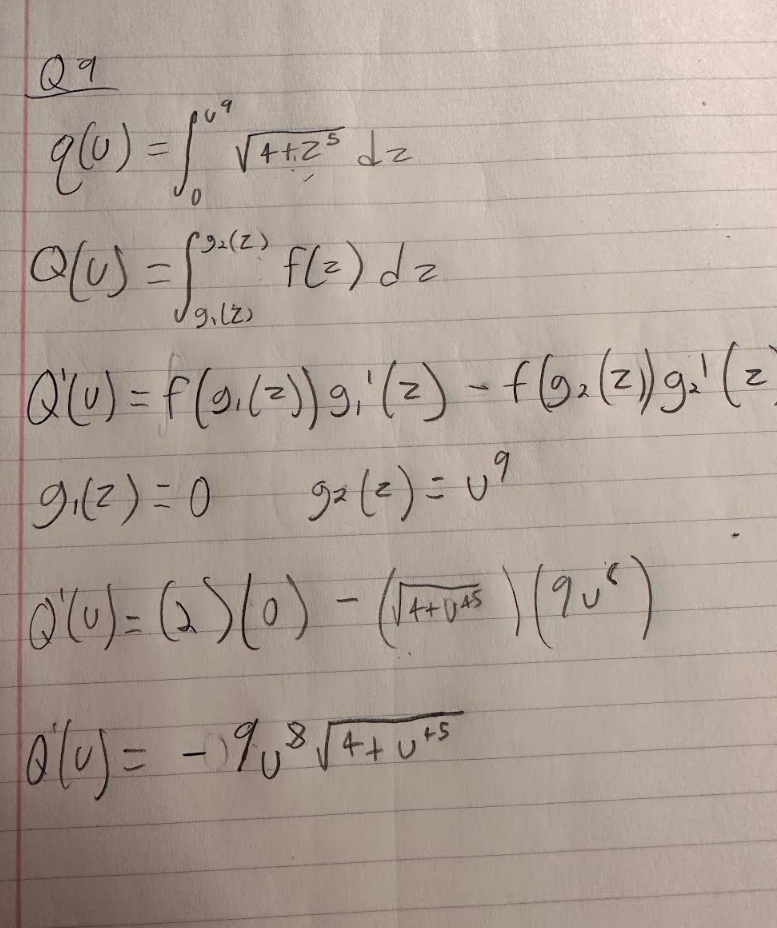 Q9
q(u) = ∫₀^{u⁹} √(4+z⁵) dz
Q(u) = ∫_{g₁(z)}^{g₂(z)} f(z) dz
Q'(u) = f(g₁(z))g₁'(z) - f(g₂(z))g₂'(z)
g₁(z) = 0 g₂(z) = u⁹
Q'(u) = (2)(0) - (√(4+u⁴⁵))(9u⁸)
Q'(u) = -9u⁸√(4+u⁴⁵)